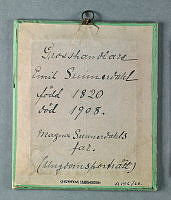 Grosshandlare
Emil Sunnerdahl
född 1820
död 1908.
Magna Sunnerdahls
far.
(Ungdomsporträtt)